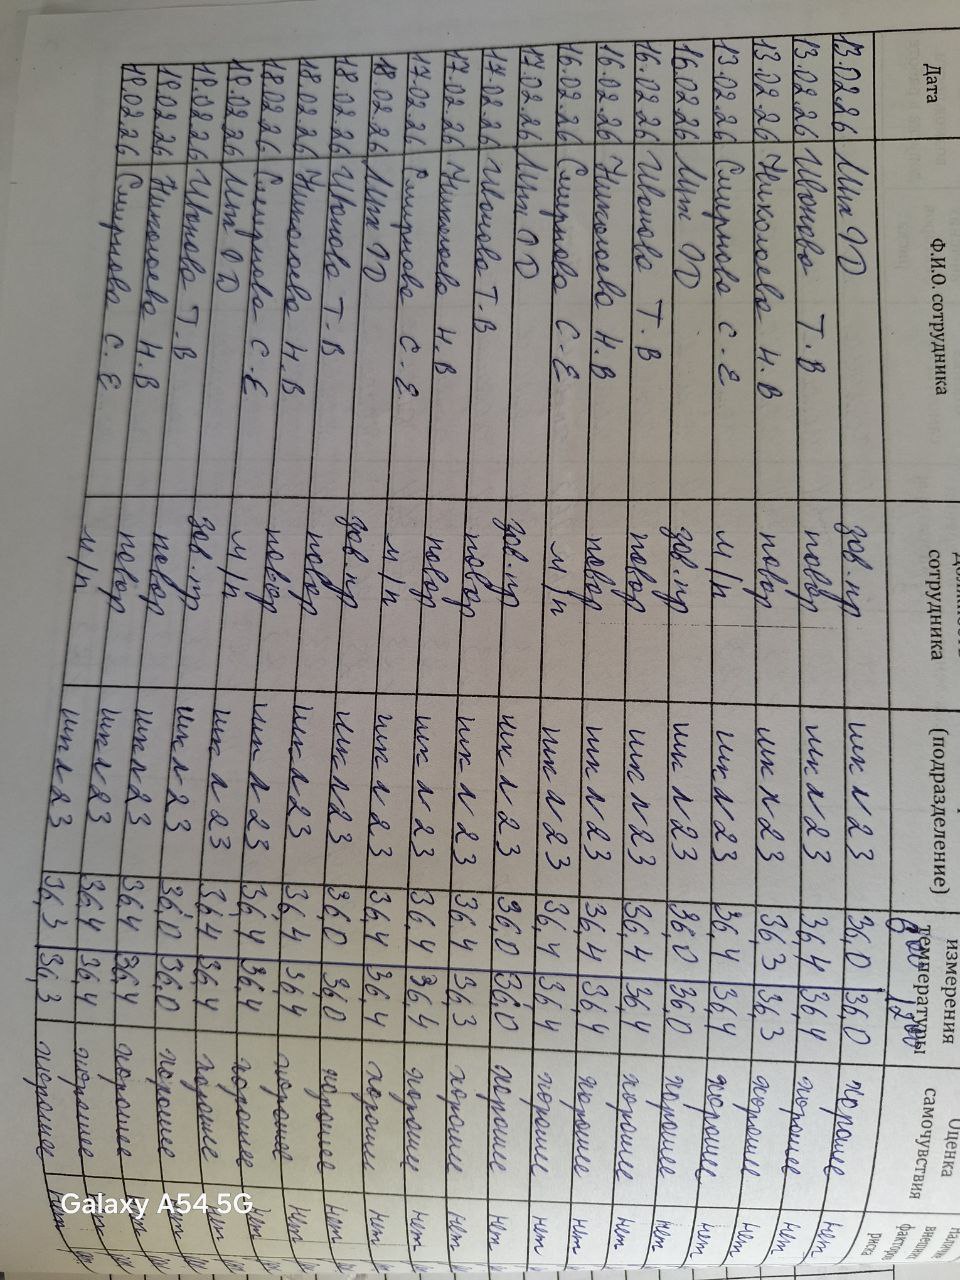 Дата Ф.И.О. сотрудника сотрудника (подразделение) измерения температуры Оценка самочувствия внешних факторов риска
13.02.26 зав.пр шк л 23 36,0 36,0 хорошее нет
13.02.26 Иванова Т.В повар шк л 23 36,4 36,4 хорошее нет
13.02.26 Николаева Н.В повар шк л 23 36,3 36,3 хорошее нет
13.02.26 Смирнова С.Е м/п шк л 23 36,4 36,4 хорошее нет
16.02.26 зав.пр шк л 23 36,0 36,0 хорошее нет
16.02.26 Иванова Т.В повар шк л 23 36,4 36,4 хорошее нет
16.02.26 Николаева Н.В повар шк л 23 36,4 36,4 хорошее нет
16.02.26 Смирнова С.Е м/п шк л 23 36,4 36,4 хорошее нет
17.02.26 зав.пр шк л 23 36,0 36,0 хорошее нет
17.02.26 Иванова Т.В повар шк л 23 36,4 36,3 хорошее нет
17.02.26 Николаева Н.В повар шк л 23 36,4 36,4 хорошее нет
17.02.26 Смирнова С.Е м/п шк л 23 36,4 36,4 хорошее нет
18.02.26 зав.пр шк л 23 36,0 36,0 хорошее нет
18.02.26 Иванова Т.В повар шк л 23 36,4 36,4 хорошее нет
18.02.26 Николаева Н.В повар шк л 23 36,4 36,4 хорошее нет
18.02.26 Смирнова С.Е м/п шк л 23 36,4 36,4 хорошее нет
зав.пр шк л 23 36,0 36,0 хорошее нет
Иванова Т.В повар шк л 23 36,4 36,4 хорошее нет
Николаева Н.В повар шк л 23 36,4 36,4 хорошее нет
Смирнова С.Е м/п шк л 23 36,3 36,3 хорошее нет
Galaxy A54 5G